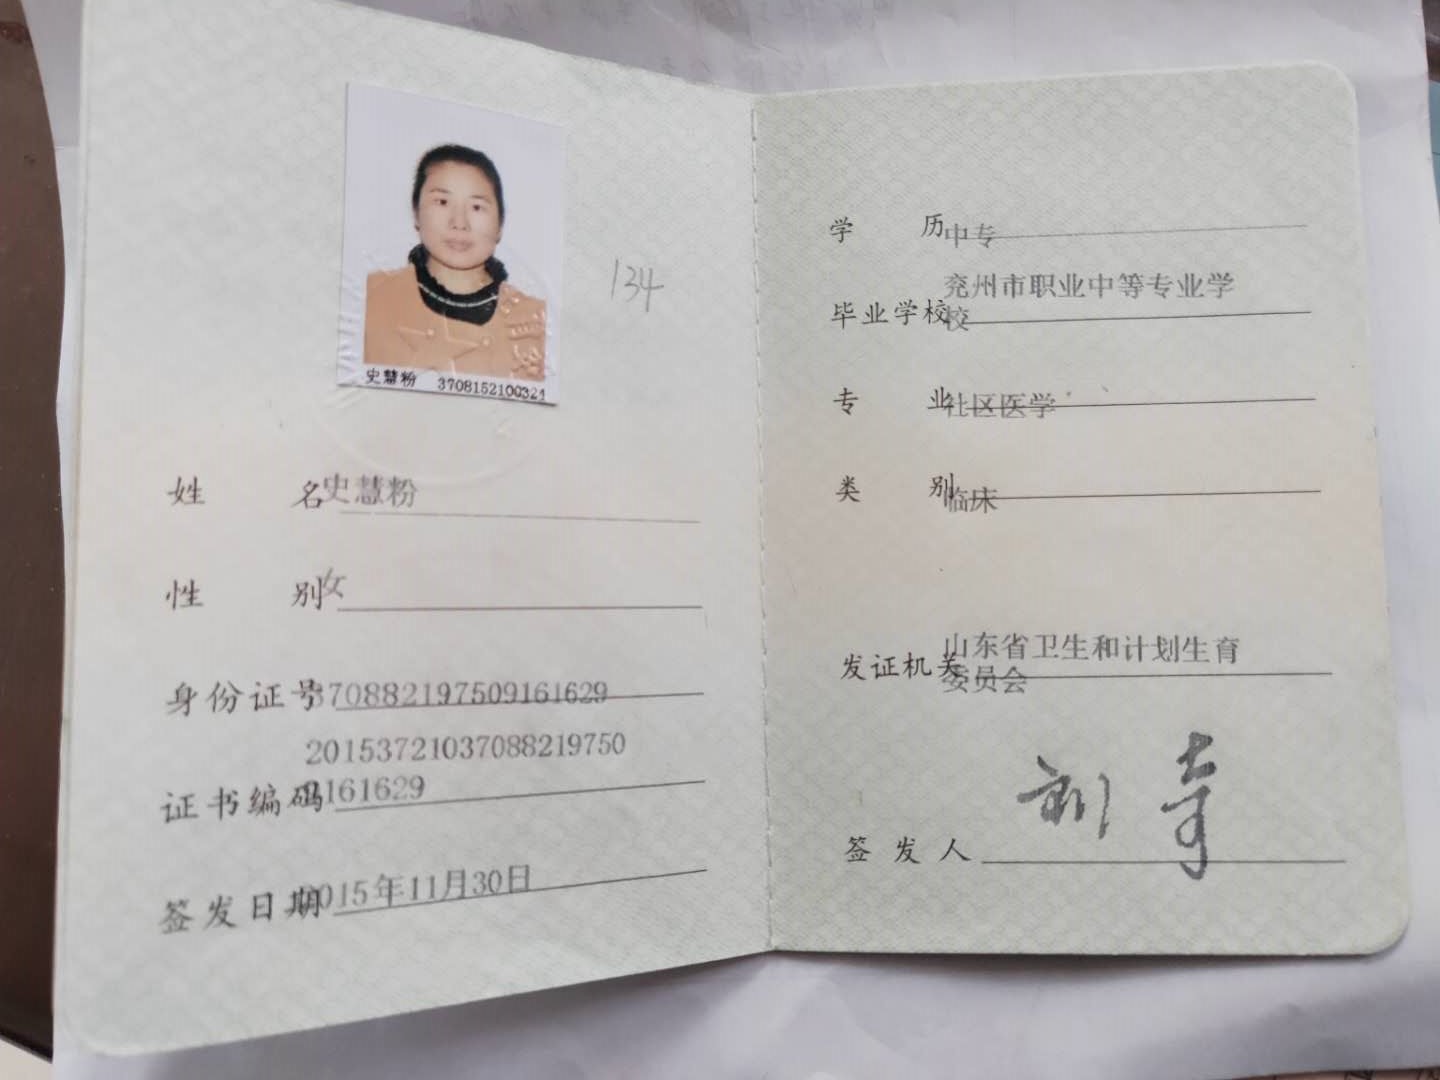 史慧粉 3708152100324
134
姓名史慧粉
性别女
身份证号370882197509161629
20153721037088219750
证书编码9161629
签发日期2015年11月30日
学历中专
兖州市职业中等专业学
毕业学校校
专业社区医学
类别临床
山东省卫生和计划生育
发证机关委员会
刘奇
签发人